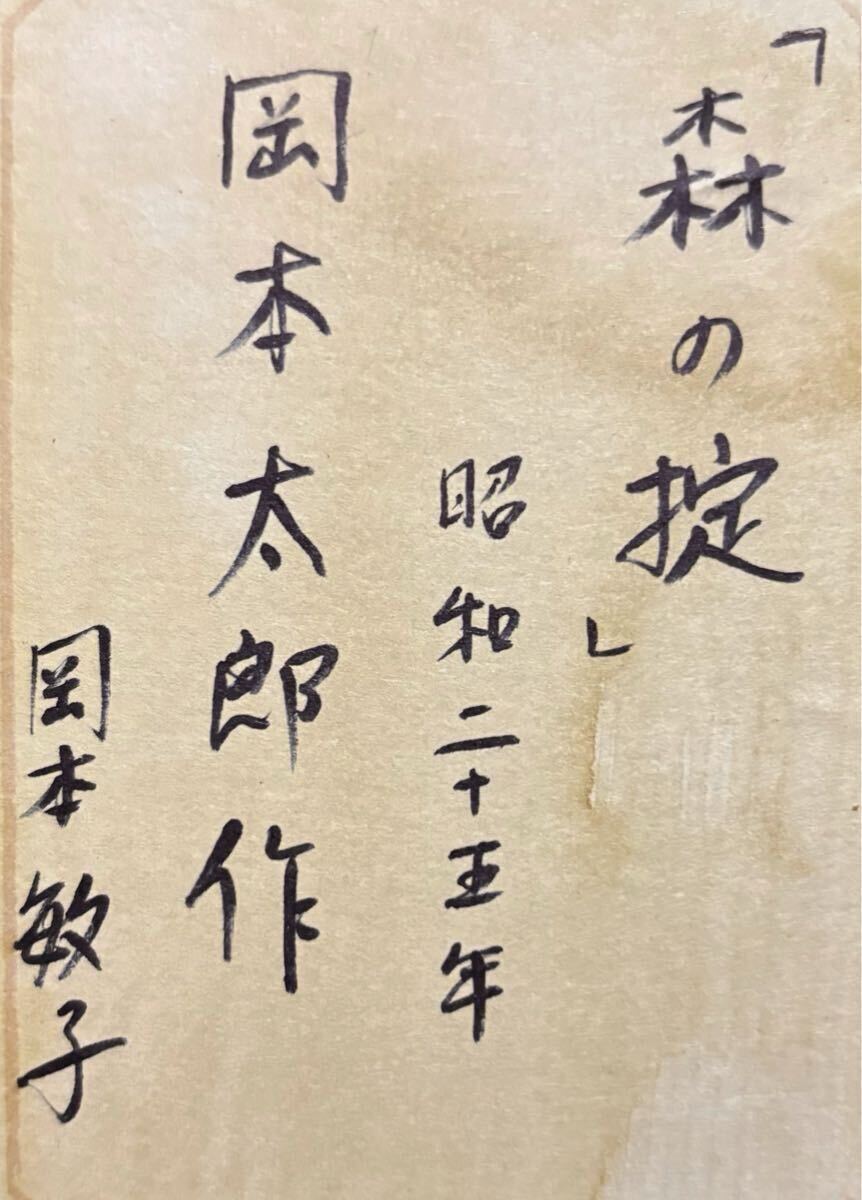 「森の掟」
昭和二十五年
岡本太郎作
岡本敏子